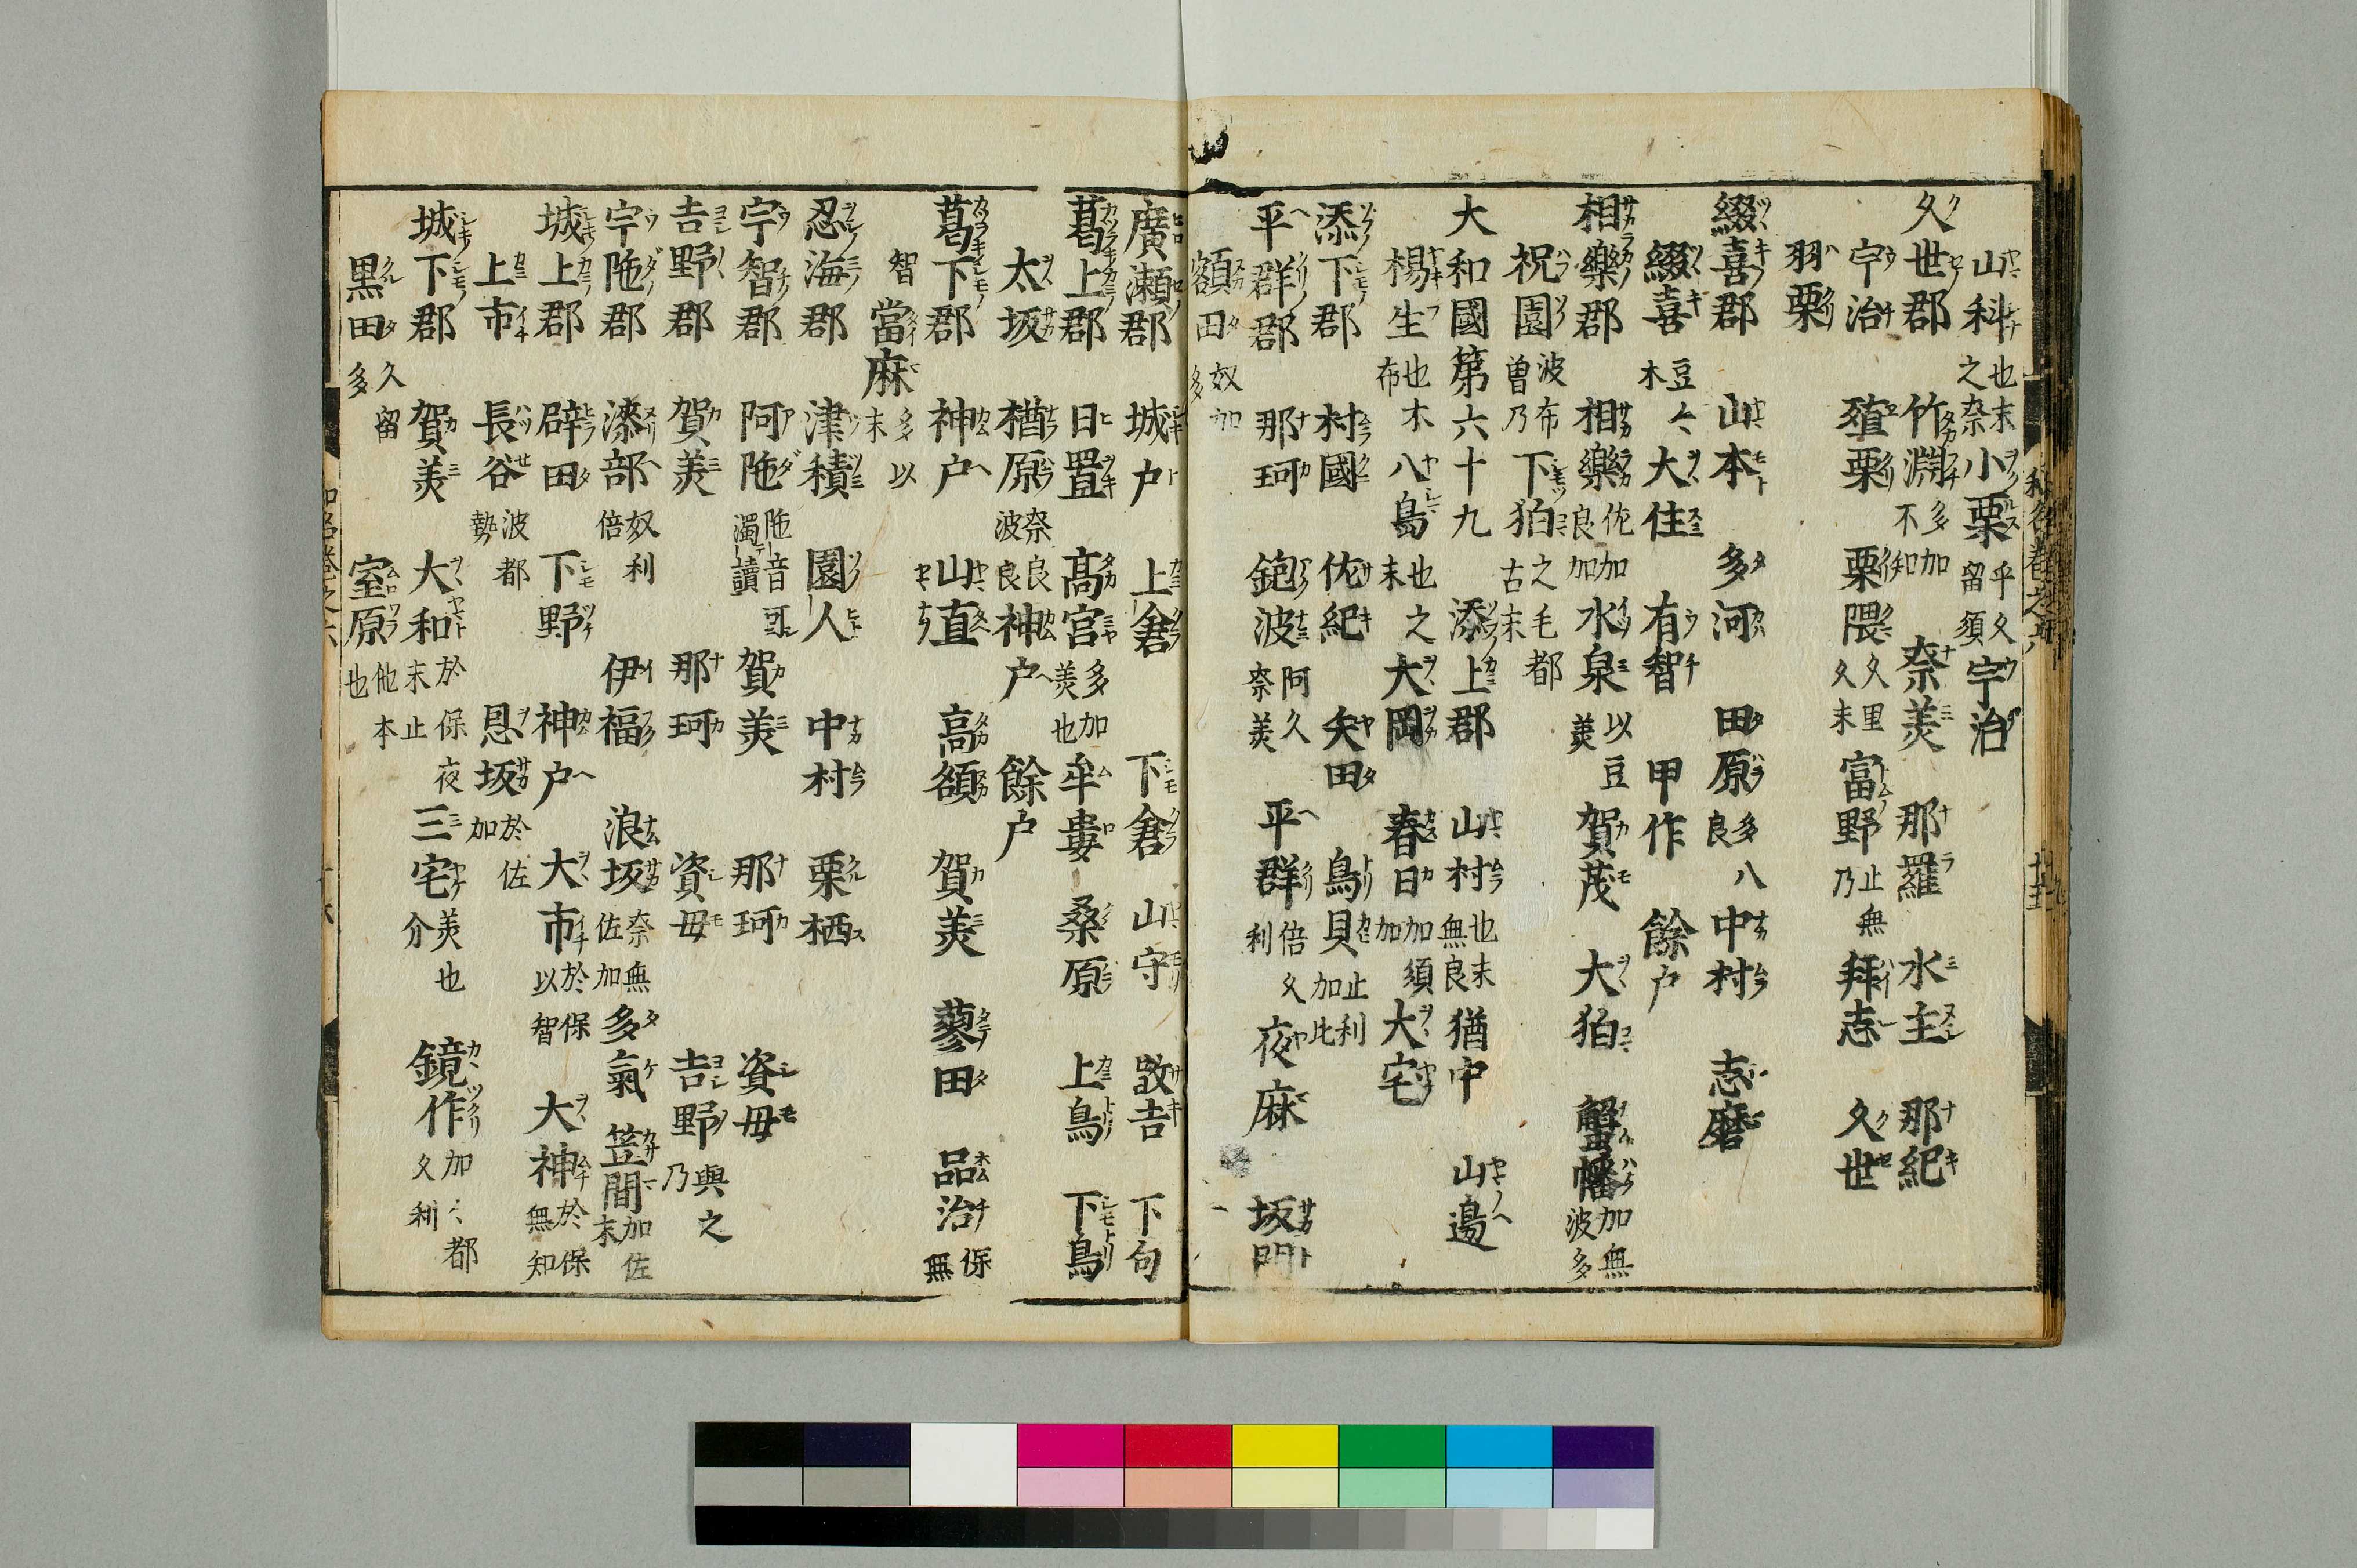 山科也末之奈 小栗乎久留須 宇治
久世郡 竹淵多加不知 奈美 那羅 水主 那紀
宇治 殖栗 栗隈久里久末 富野止無乃 拜志 久世
羽栗
綴喜郡 山本 多河 田原多八良 中村 志磨
綴喜豆々木 大住 有智 甲作 餘戸
相樂郡 相樂佐加良加 水泉以豆美 賀茂 大狛 蟹幡加無波多
祝園波布曽乃 下狛之毛都古末
大和國第六十九 添上郡 山村也末無良 猶中 山邊
楊生也木布 八島也之末 大岡 春日加須加 大宅
添下郡 村國 佐紀 矢田 鳥貝止利加比
平群郡 那珂 鉋波阿久奈美 平群倍久利 夜麻 坂門
額田奴加多
廣瀬郡 城戸 上倉 下倉 山守 散吉 下勾
葛上郡 日置 高宮多加美也 牟婁 桑原 上鳥 下鳥
太坂 楢原奈良波良 神戸 餘戸
葛下郡 神戸 山直 高額 賀美 蓼田 品治保無
智 當麻多以末
忍海郡 津積 園人 中村 栗栖
宇智郡 阿陁陁音可濁讀 賀美 那珂 資母
吉野郡 賀美 那珂 資母 吉野與之乃
宇陁郡 漆部奴利倍 伊福 浪坂奈無佐加 多氣 笠間加佐末
城上郡 辟田 下野 神戸 大市於保以智 大神於保無知
上市 長谷波都勢 恩坂於佐加
城下郡 賀美 大和於保夜末止 三宅美也介 鏡作加々都久利
黒田久留多 室原